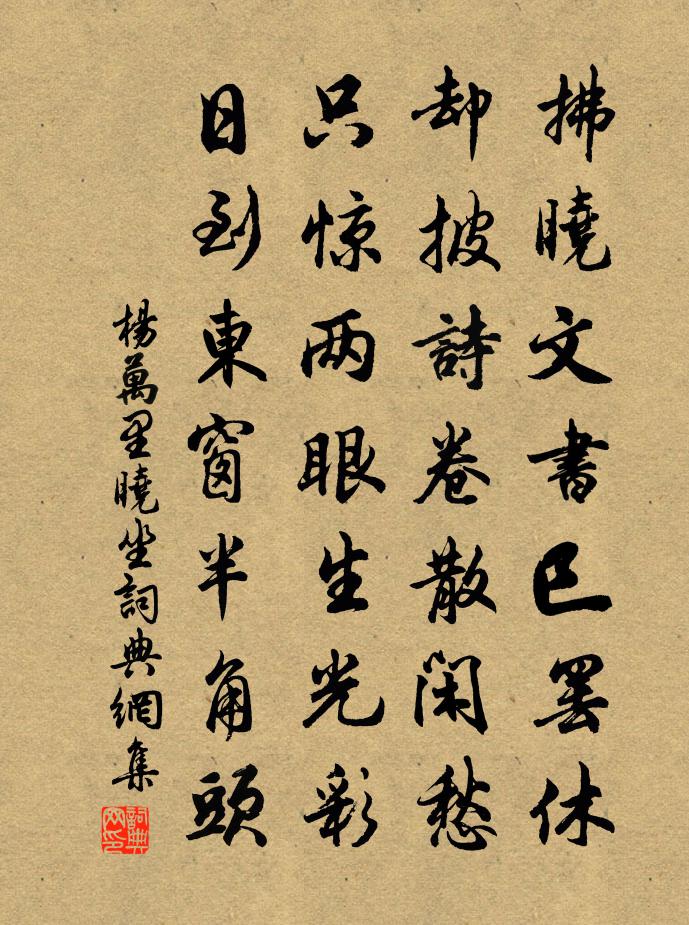 拂曉文書已罢休
却披詩卷散閑愁
只惊两眼生光彩
日到東窗半角頭
楊萬里曉坐詞典網集
詞典网印